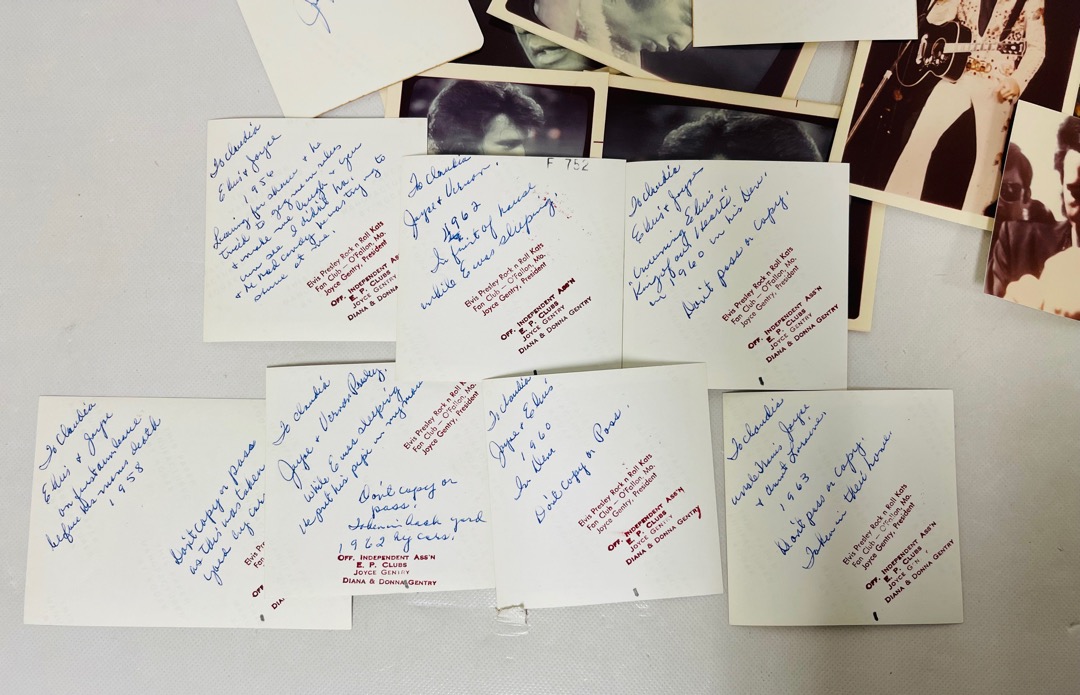 To Claudia
Elvis & Joyce
1956
Leaving for show & he
tried to zig me in ribs
& make me laugh & you
can see I didn't ha!
& he had candy he was trying to
at me.
Elvis Presley Rock n Roll Kats
Fan Club — O'Fallon, Mo.
Joyce Gentry, President
OFF. INDEPENDENT ASS
E. P. CLUBS
JOYCE GENTR
DIANA & DONNA
F 752
To Claudia
Joyce & Vernon.
1962
In front of house
while E was sleeping.
Elvis Presley Rock n Roll Kats
Fan Club — O'Fallon, Mo.
Joyce Gentry, President
OFF. INDEPENDENT ASS'N
E. P. CLUBS
JOYCE GENTRY
DIANA & DONNA GENTRY
To Claudia
Elvis & Joyce
"Evening Elvis"
"King of our Hearts"
in 1960 in his Den.
Don't pass or copy.
Elvis Presley Rock n Roll Kats
Fan Club — O'Fallon, Mo.
Joyce Gentry, President
OFF. INDEPENDENT ASS'N
E. P. CLUBS
JOYCE GENTRY
DIANA & DONNA GENTRY
To Claudia
Elvis & Joyce
on first leave
before his moms death
1958
Don't copy or pass
as this was taken
yard by
Elvis Pr
OFF
DIA
To Claudia
Joyce & Vernon Presley.
While E was sleeping
he put his pipe in my
Don't copy or
pass!
Taken in back yard
1962 by cars.
Elvis Presley Rock n Roll K
Fan Club — O'Fallon, Mo.
Joyce Gentry, President
OFF. INDEPENDENT ASS'N
E. P. CLUBS
JOYCE GENTRY
DIANA & DONNA GENTRY
To Claudia
Joyce & Elvis
1960
In Den
Don't copy or Pass.
Elvis Presley Rock n Roll Kats
Fan Club — O'Fallon, Mo.
Joyce Gentry, President
OFF. INDEPENDENT ASS'N
E. P. CLUBS
JOYCE GENTRY
DIANA & DONNA GENTRY
To Claudia
uncle Travis, Joyce
& aunt Lorraine
1963
Don't pass or copy.
Taken in their home.
Elvis Presley Rock n Roll Kats
Fan Club — O'Fallon, Mo.
Joyce Gentry, President
OFF. INDEPENDENT ASS'N
E. P. CLUBS
JOYCE G N
DIANA & DONNA GENTRY